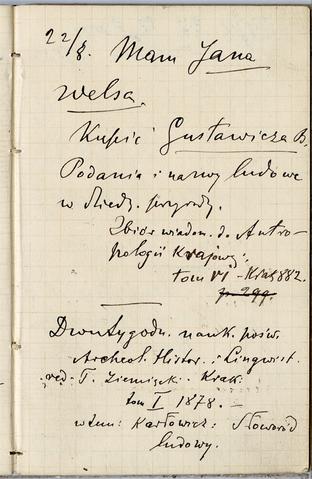 22/8. Mam Jana
Welsa.
Kupić Gustawicza B.
Podania i nazwy ludowe
w dziedz. przyrody.
Zbiór wiadom. d. Antro-
pologii Krajowej.
tom VI - Krak 882.
p. 299.
Dwutygodn. nauk. pośw.
Archeol. Histor. i Lingwist.
red. T. Ziemięck. Krak.
tom I 1878. -
w tem: Karłowicz: Słoworód
ludowy.